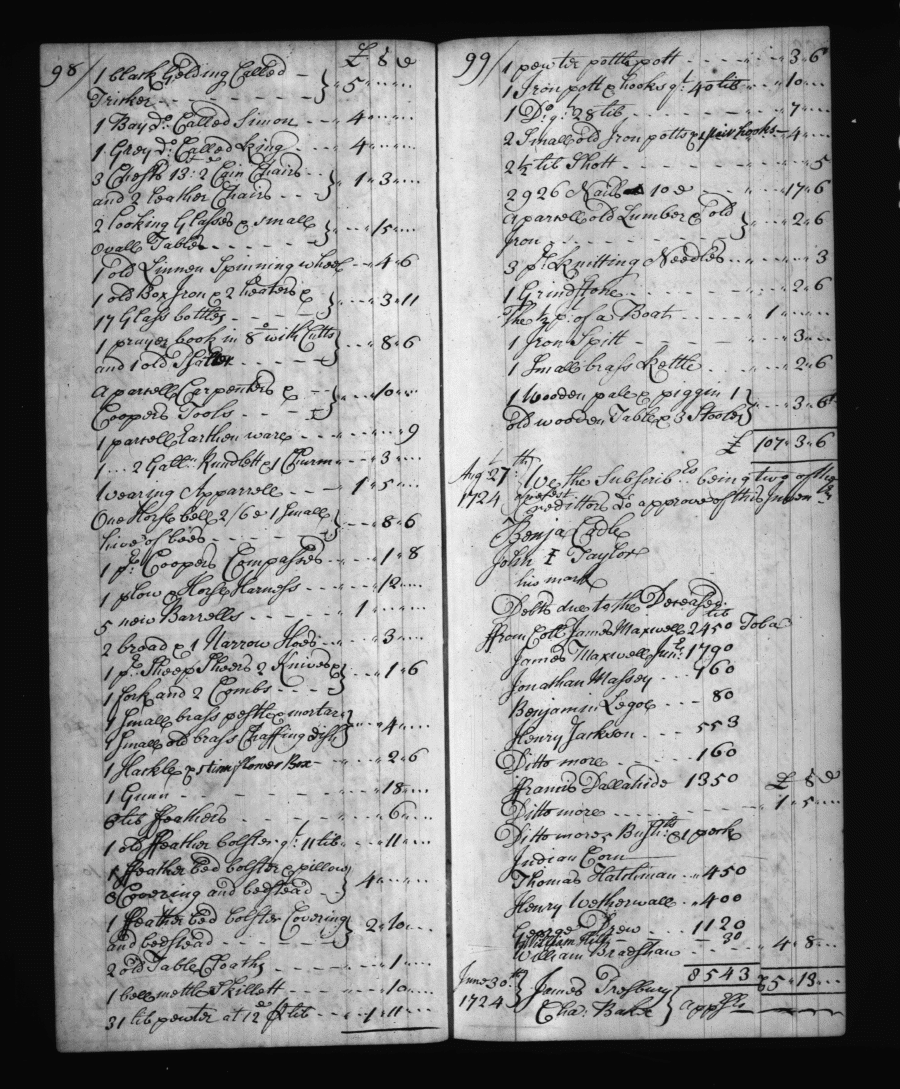 98/
£ S D
1 black Gelding Called
Tricker - - - - - - } - 5 - - -
1 Bay Do. Called Simon - - - 4 - - -
1 Grey Do. Called King - - - 4 - - -
3 Chests 13: 2 Cain Chairs
and 2 leather Chairs - - } - 1 - 3 - - -
2 looking Glasses & small
ovall Table - - - - - } - - 15 - - -
1 old Linnen Spinning wheel - - 4 - 6
1 old Box Iron & 2 heaters &
17 Glass bottles - - - - - } - - 3 - 11
1 prayer book in 8o with Cutts
and 1 old Psalter - - - } - - 8 - 6
a parsell Carpenters &
Coopers Tools - - - - } - - 10 - - -
1 parsell Earthen ware - - - - - 9
1 . . 2 Gall: Rundlett & 1 Churn - - 3 - - -
Wearing Apparrell - - - - 1 - 5 - - -
One Horse bell 2/6 & 1 Small
hive of bees - - - - - } - - 8 - 6
1 pr. Coopers Compasses - - - 1 - 8
1 plow & Horse Harness - - - 12 - - -
5 new Barrells - - - - - 1 - - -
2 broad & 1 Narrow Hoes - - - 3 - - -
1 pr. Sheep Sheers 2 Knives &
1 fork and 2 Combs - - - } - - 1 - 6
1 Small brass pestle & mortar
1 Small old brass Chaffing dish } - - 4 - - -
1 Hackle & 1 tinn flower Box - - 2 - 6
1 Gunn - - - - - - 18 - - -
6 lib ffeathers - - - - - 6 - - -
1 old ffeather bolster qt. 11 lib - - 11 - - -
1 ffeather bed bolster & pillow
Covering and bedstead - - } 4 - - -
1 ffeather bed bolster Covering
and bedstead - - - - - } 2 - 10 - - -
2 old Table Cloaths - - - - 1 - - -
1 bell mettle Skillett - - - - 10 - - -
31 lib pewter at 12d lib - - - 1 - 11 - - -
99/
1 pewter pottle pott - - - - - 3 - 6
1 Iron pott & hooks qt. 40 lib - - 10 - - -
1 Do. qt. 28 lib - - - - - 7 - - -
2 Small old Iron potts & pair hooks - 4 - - -
2½ lib Shott - - - - - - 5
2926 Nails 10d - - - - 17 - 6
a parsell old Lumber & old
Iron - - - - - - } - - 2 - 6
3 pr. Knitting Needles - - - - 3
1 Grindstone - - - - - 2 - 6
The ½ pt. of a Boat - - - - 1 - - -
1 Iron Spitt - - - - - 3 - - -
1 Small brass Kettle - - - - 2 - 6
1 Wooden pale & piggin 1
old wooden Table & 3 Stooles } - - 3 - 6
£ 107 - 3 - 6
Augt. 27th
1724
We the Subscribrs. being two of the
greatest
Creditors do approve of this Inven
Benja Cadle
John I Taylor
his mark
Debts due to the Deceased
lib
ffrom Coll. James Maxwell 2450 Toba
James Maxwell Junr: 1790
Jonathan Massey - - - 160
Benjamin Legoe - - - 80
Henry Jackson - - - 553
Ditto more - - - - 160
ffrancis Dallahide 1350
£ S D
Ditto more - - - - - - 1 - 5 - - -
Ditto more 5 Bushlls. & 1 peck
Indian Corn
Thomas Hatchman - - 450
Henry Wetherwall - - 400
George Drew - - 1120
William Hill - - 30
William Bradshaw - - - - - 4 - 8 - - -
8543 £5 - 13 - - -
June 30th
1724 } James Presbury
Cha: Baker } appsrs